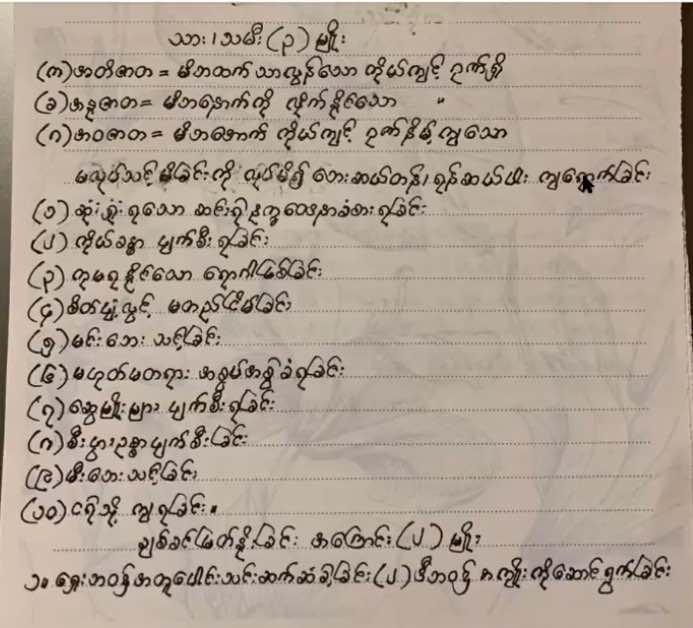 သား၊သမီး(၃)မျိုး
(က)အတိဇာတ = မိဘထက်သာလွန်သော ကိုယ်ကျင့် ဥစ္စာရှိ
(ခ)အနုဇာတ = မိဘနောက်ကို လိုက်နိုင်သော "
(ဂ)အဝဇာတ = မိဘအောက် ကိုယ်ကျင့် ဥစ္စာနိမ့်ကျသော
မလုပ်သင့်မိခြင်းကို လုပ်မိ၍ ဘေးဆယ်တန်၊ရန်ဆယ်ပါး ကျရောက်ခြင်း
(၁)ဆုံးရှုံးရသော ဆင်းရဲဒုက္ခဝေဒနာခံစားရခြင်း
(၂)ကိုယ်ခန္ဓာ ပျက်စီးရခြင်း
(၃)ကုမရနိုင်သော ရောဂါဖြစ်ခြင်း
(၄)စိတ်ပျံ့လွင့် မတည်ငြိမ်ခြင်း
(၅)မင်းဘေး သင့်ခြင်း
(၆)မဟုတ်မတရား အစွပ်အစွဲခံရခြင်း
(၇)ဆွေမျိုးများ ပျက်စီးရခြင်း
(၈)စီးပွားဥစ္စာပျက်စီးခြင်း
(၉)မီးဘေးသင့်ခြင်း
(၁၀)ငရဲသို့ ကျရခြင်း။
ချစ်ခင်မြတ်နိုးခြင်း အကြောင်း(၂)မျိုး
၁။ ရှေးဘဝ၌အတူပေါင်းသင်းဆက်ဆံခဲ့ခြင်း(၂)ဒီဘဝ၌ အကျိုးကိုဆောင်ရွက်ခြင်း